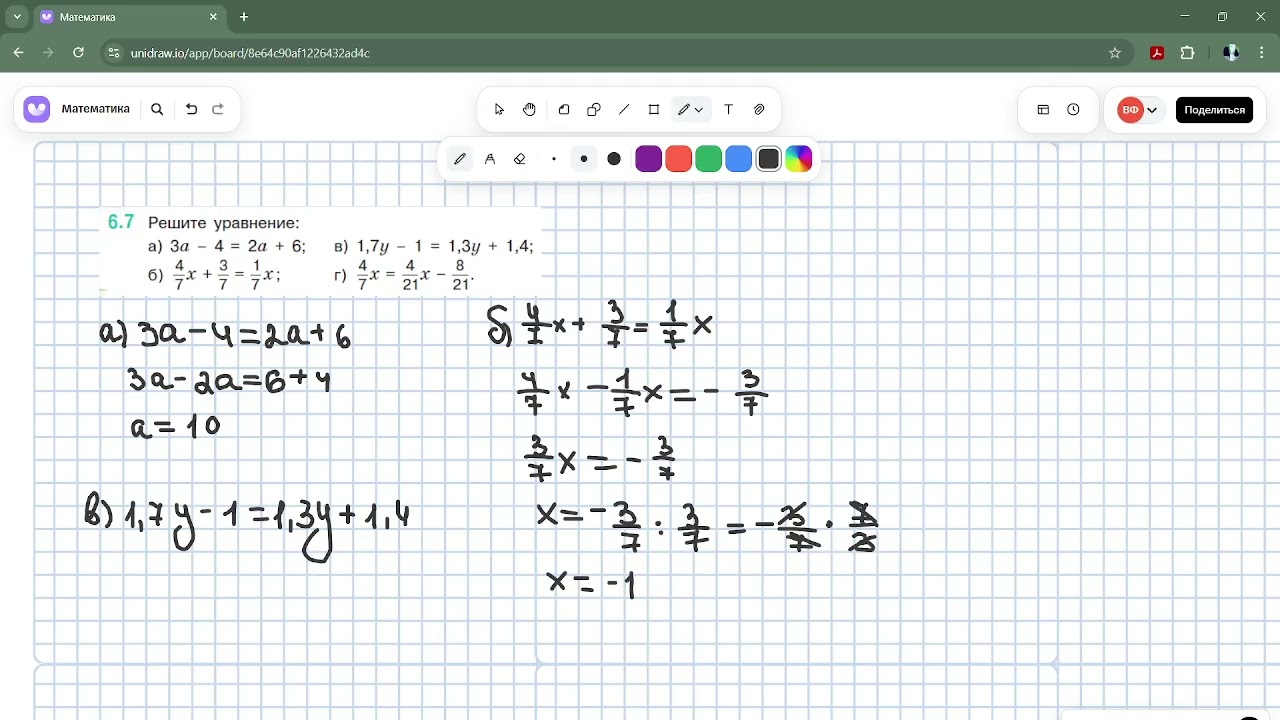 Математика
unidraw.io/app/board/8e64c90af1226432ad4c
Математика
T
ВФ
Поделиться
6.7 Решите уравнение:
а) 3a − 4 = 2a + 6; в) 1,7y − 1 = 1,3y + 1,4;
б) 4/7 x + 3/7 = 1/7 x; г) 4/7 x = 4/21 x − 8/21.
а) 3a − 4 = 2a + 6
3a − 2a = 6 + 4
a = 10
в) 1,7y − 1 = 1,3y + 1,4
б) 4/7 x + 3/7 = 1/7 x
4/7 x − 1/7 x = − 3/7
3/7 x = − 3/7
x = − 3/7 : 3/7 = − 3/7 · 7/3
x = −1